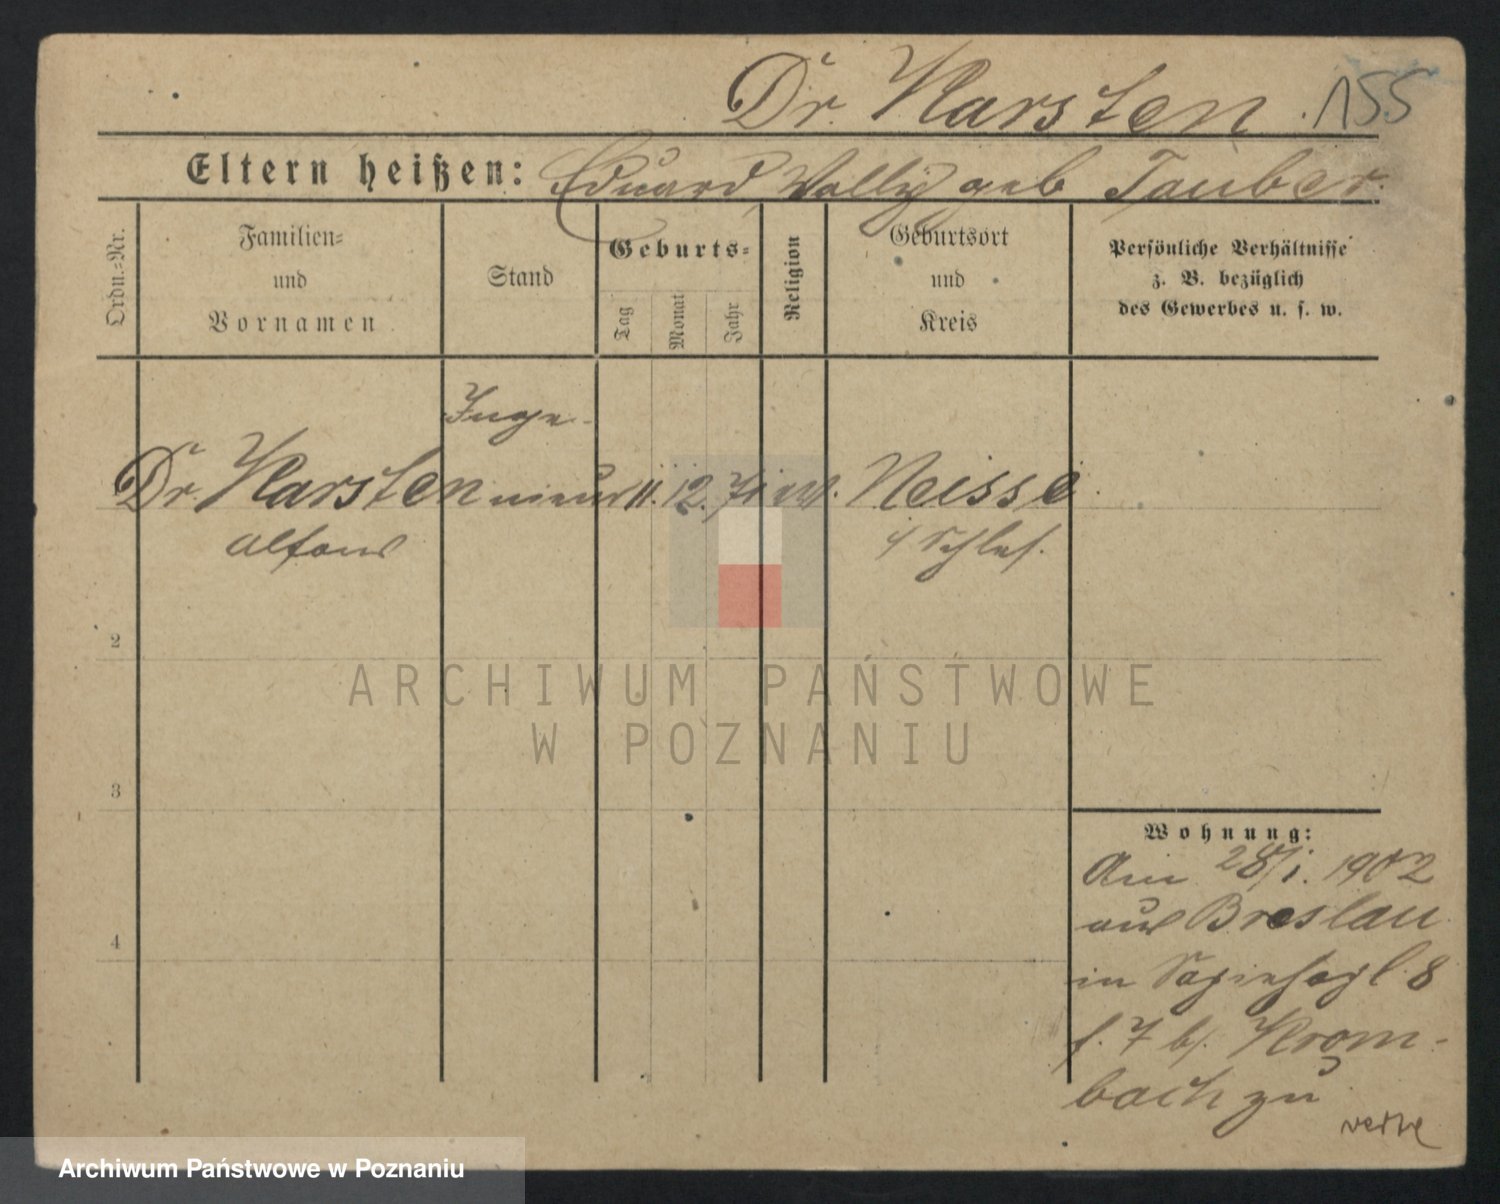 Dr. Karsten 155
Eltern heißen: Eduard, Wally geb Tauber.
Ordn.=Nr.
Familien=
und
Vornamen
Stand
Geburts=
Tag
Monat
Jahr
Religion
Geburtsort
und
Kreis
Persönliche Verhältnisse
z. B. bezüglich
des Gewerbes u. s. w.
Inge-
Dr. Karsten nieur 11. 12. 71 ev. Neisse
Alfons
i/ Schles.
2
3
4
Wohnung:
Am 28/1. 1902
aus Breslau
in Sapiehapl. 8
b/. Krom-
bach zu
ARCHIWUM PAŃSTWOWE
W POZNANIU
Archiwum Państwowe w Poznaniu